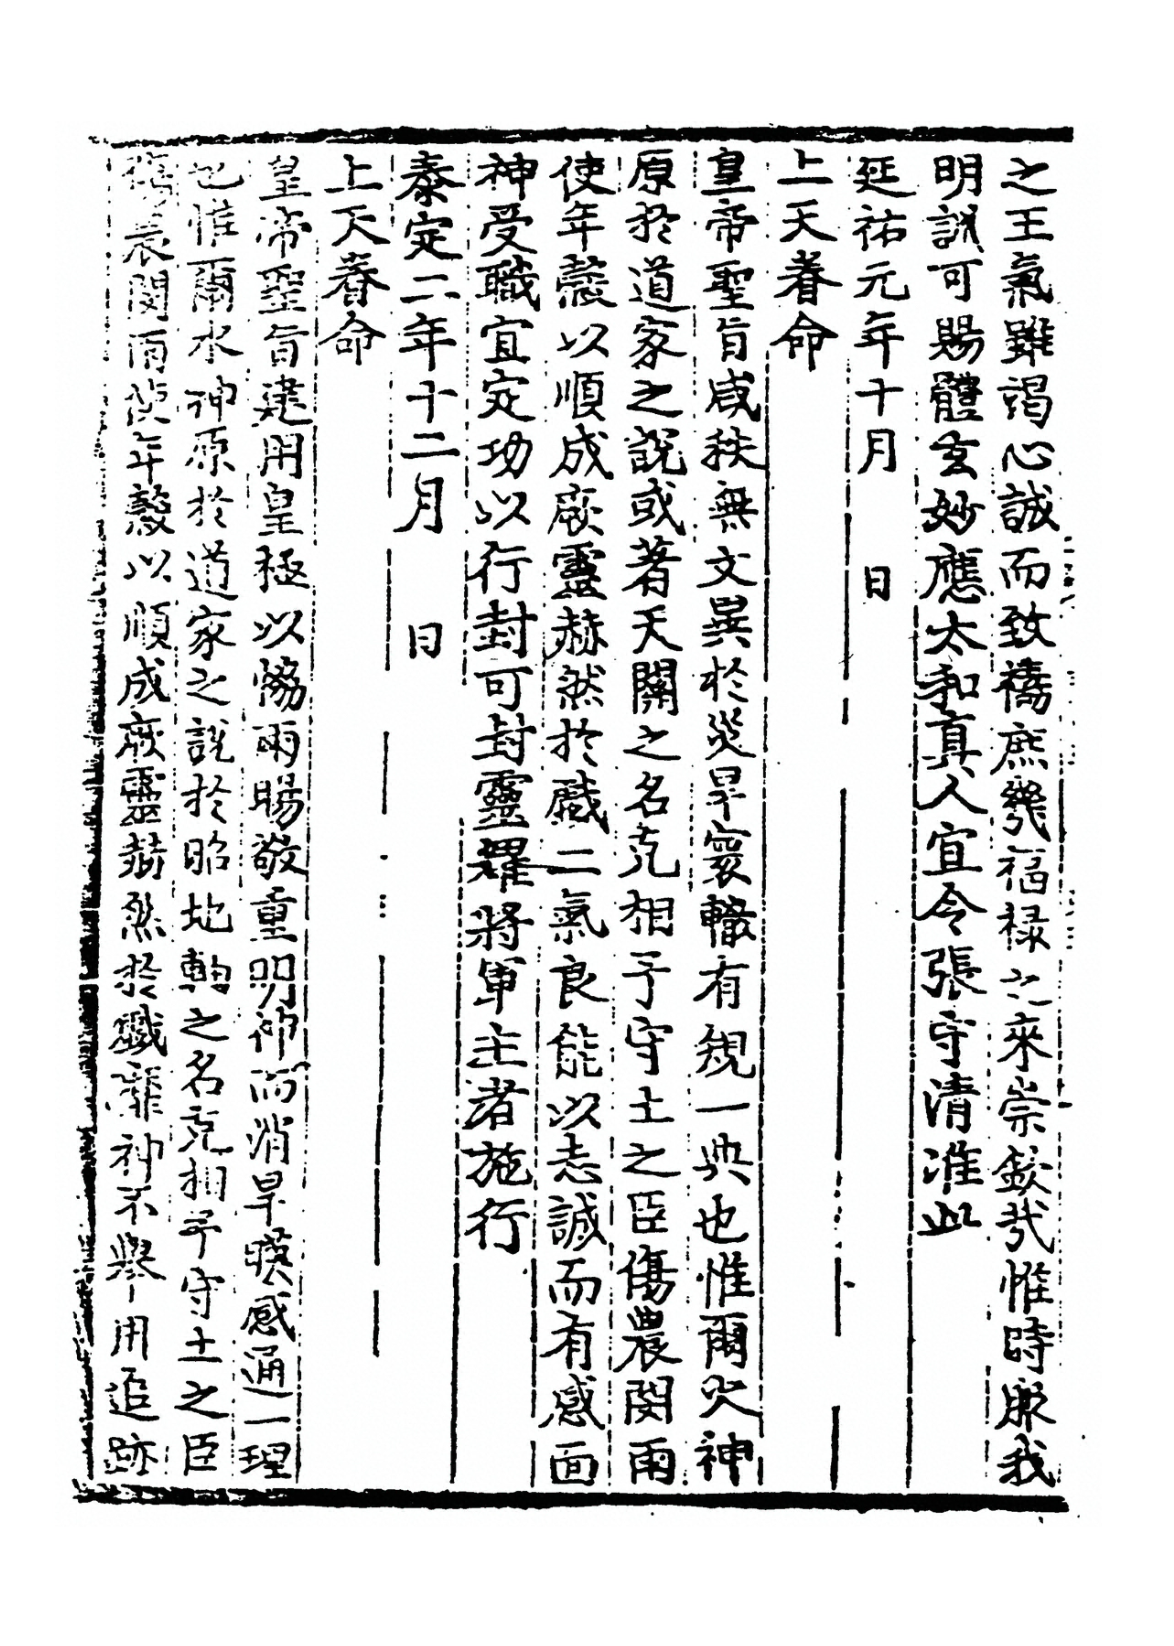 之王氣雖竭心誠而致禱庶幾福禄之來崇欽㢤惟時服我
明訓可賜體玄妙應太和真人宜令張守清准此
延祐元年十月　日
上天眷命
皇帝聖旨咸秩無文異於災旱寔轍有規一典也惟爾火神
原於道家之說或著天關之名克相予守土之臣傷農閔雨
使年穀以順成厥靈赫然於戲二氣良能以志誠而有感面
神受職宜定功以行封可封靈耀將軍主者施行
泰定二年十二月　日
上天眷命
皇帝聖旨建用皇極以恊雨暘敬重明神而消旱暵感通一理
也惟爾水神原於道家之說於昭地軸之名克相予守土之臣
傷農閔雨使年穀以順成厥靈赫然於戲靡神不舉用追跡